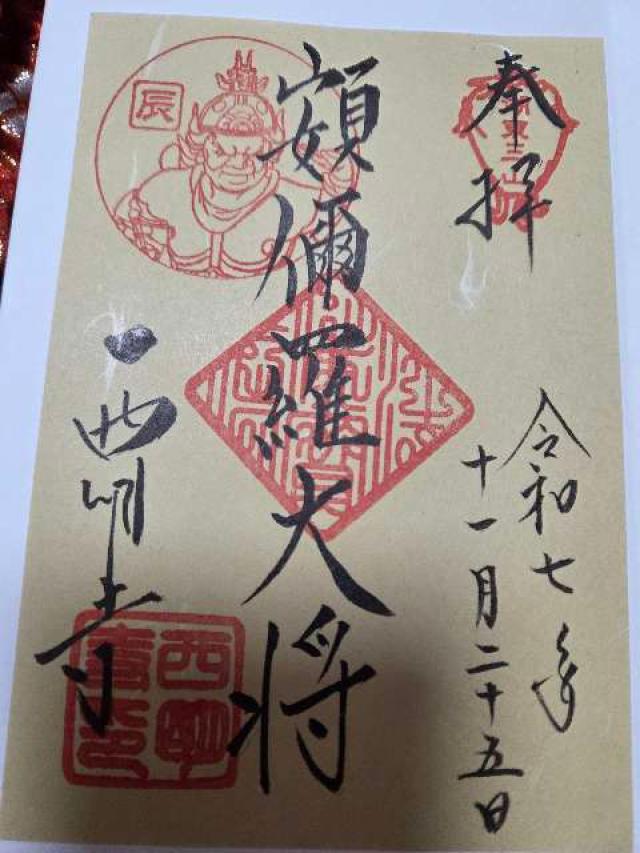 奉拝
令和七年
十一月二十五日
頞儞羅大将
辰
西明寺
西明